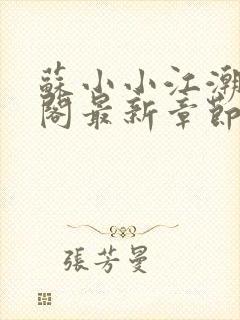 蘇小小江潮
閣最新章節
張芳曼